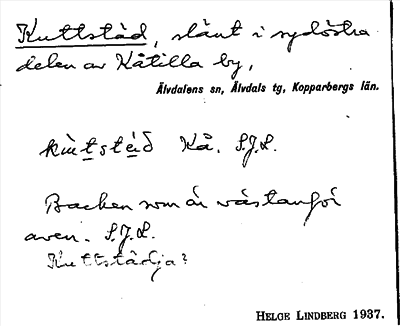 Kuttstäd, slänt i sydöstra
delen av Kåtilla by,
Älvdalens sn, Älvdals tg, Kopparbergs län.
Kå. S.J.L.
Backen som är västanför
även. S.J.L.
Kuttstädja?
HELGE LINDBERG 1937.